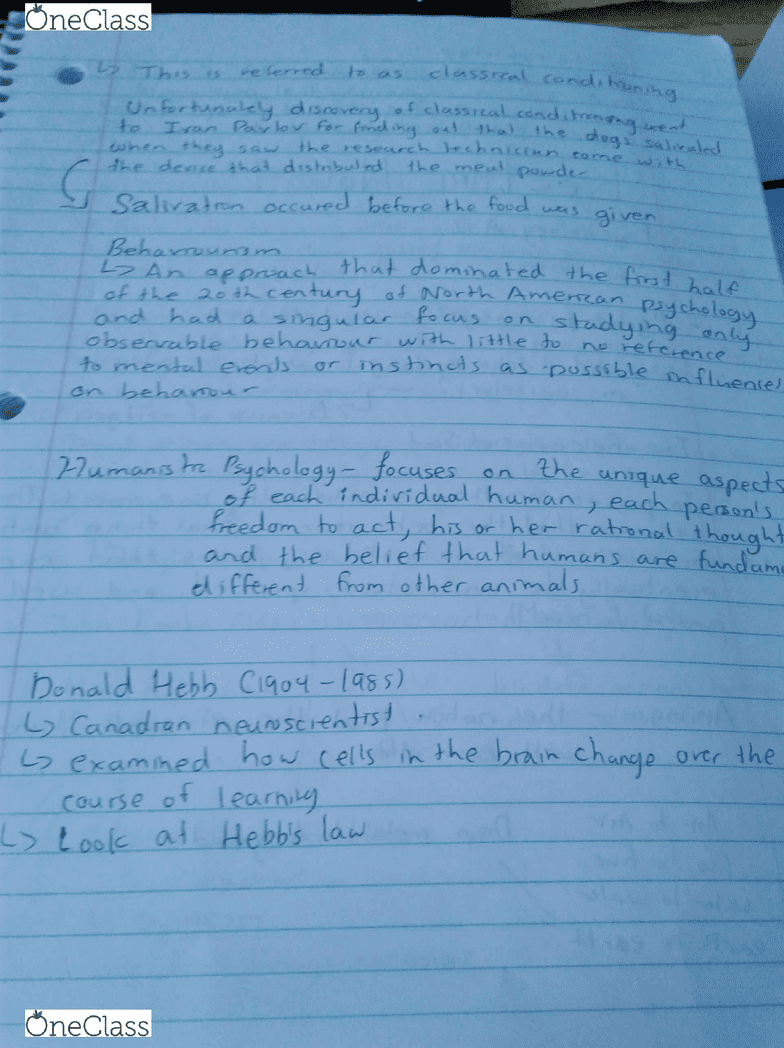 OneClass
↳ This is referred to as classical conditioning
Unfortunately discovery of classical conditioning went
to Ivan Pavlov for finding out that the dogs salivated
when they saw the research technician come with
the device that distributed the meat powder
Salivation occured before the food was given
Behaviourism
↳ An approach that dominated the first half
of the 20th century of North American psychology
and had a singular focus on studying only
observable behaviour with little to no reference
to mental events or instincts as possible influences
on behaviour
Humanistic Psychology - focuses on the unique aspects
of each individual human, each person's
freedom to act, his or her rational thought
and the belief that humans are fundame
different from other animals
Donald Hebb (1904-1985)
↳ Canadian neuroscientist.
↳ examined how cells in the brain change over the
course of learning
↳ Look at Hebb's law
OneClass